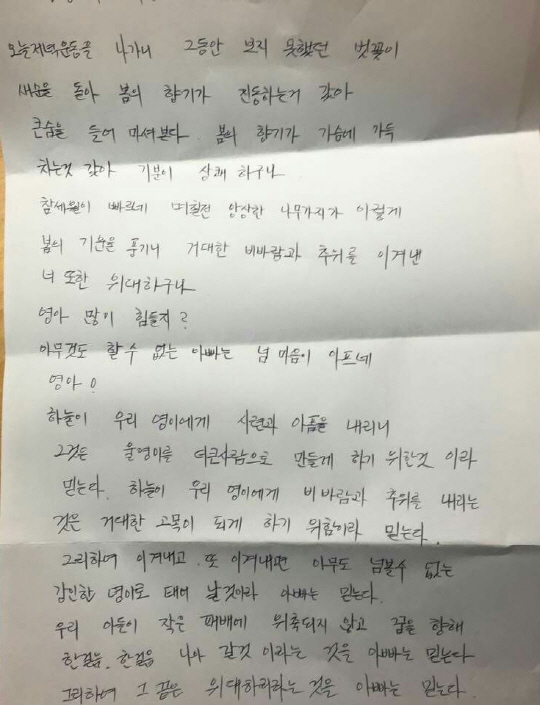 오늘저녁운동을 나가니 그동안 보지 못했던 벚꽃이
새순을 돌아 봄의 향기가 진동하는거 같아
큰숨을 들어 마셔본다. 봄의 향기가 가슴에 가득
차는것 같아 기분이 상쾌 하구나
참세월이 빠르지 며칠전 앙상한 나무가지가 이렇게
봄의 기운을 풍기니 거대한 비바람과 추위를 이겨낸
너 또한 위대하구나
영아 많이 힘들지?
아무것도 할수 없는 아빠는 넘 마음이 아프네
영아!
하늘이 우리 영이에게 시련과 아픔을 내리니
그것은 울영이를 더큰사람으로 만들게 하기 위한것 이라
믿는다. 하늘이 우리 영이에게 비바람과 추위를 내리는
것은 거대한 고목이 되게 하기 위함이라 믿는다.
그리하여 이겨내고 또 이겨내면 아무도 넘볼수 없는
강인한 영이로 태어 날것이라 아빠는 믿는다.
우리 아들이 작은 패배에 위축되지 않고 꿈을 향해
한걸음. 한걸음 나아 갈것 이라는 것을 아빠는 믿는다
그리하여 그 끝은 위대하리라는 것을 아빠는 믿는다.